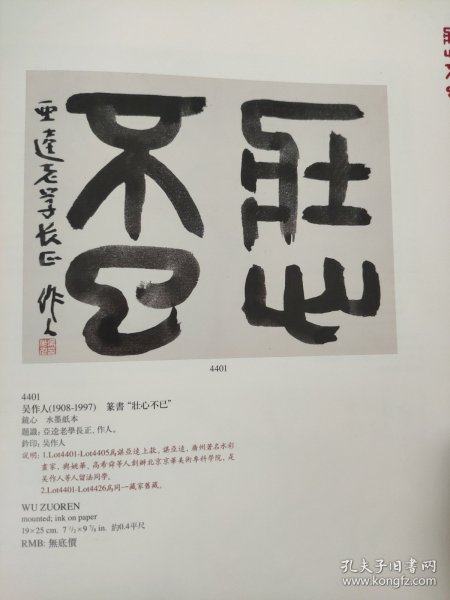 壯心
不已
亚達老学长正
作人
4401
4401
吴作人(1908-1997) 篆書“壯心不已”
鏡心 水墨紙本
題識：亞達老學長正，作人。
鈐印：吴作人
說明：1.Lot4401-Lot4405爲諶亞達上款，諶亞達，廣州著名水彩
畫家，與姚華、高希舜等人創辦北京京華美術專科學院，是
吴作人等人留法同學。
2.Lot4401-Lot4426爲同一藏家舊藏。
WU ZUOREN
mounted; ink on paper
19×25 cm. 7 1/2×9 7/8 in. 約0.4平尺
RMB: 無底價
孔夫子旧书网
www.kongfz.com